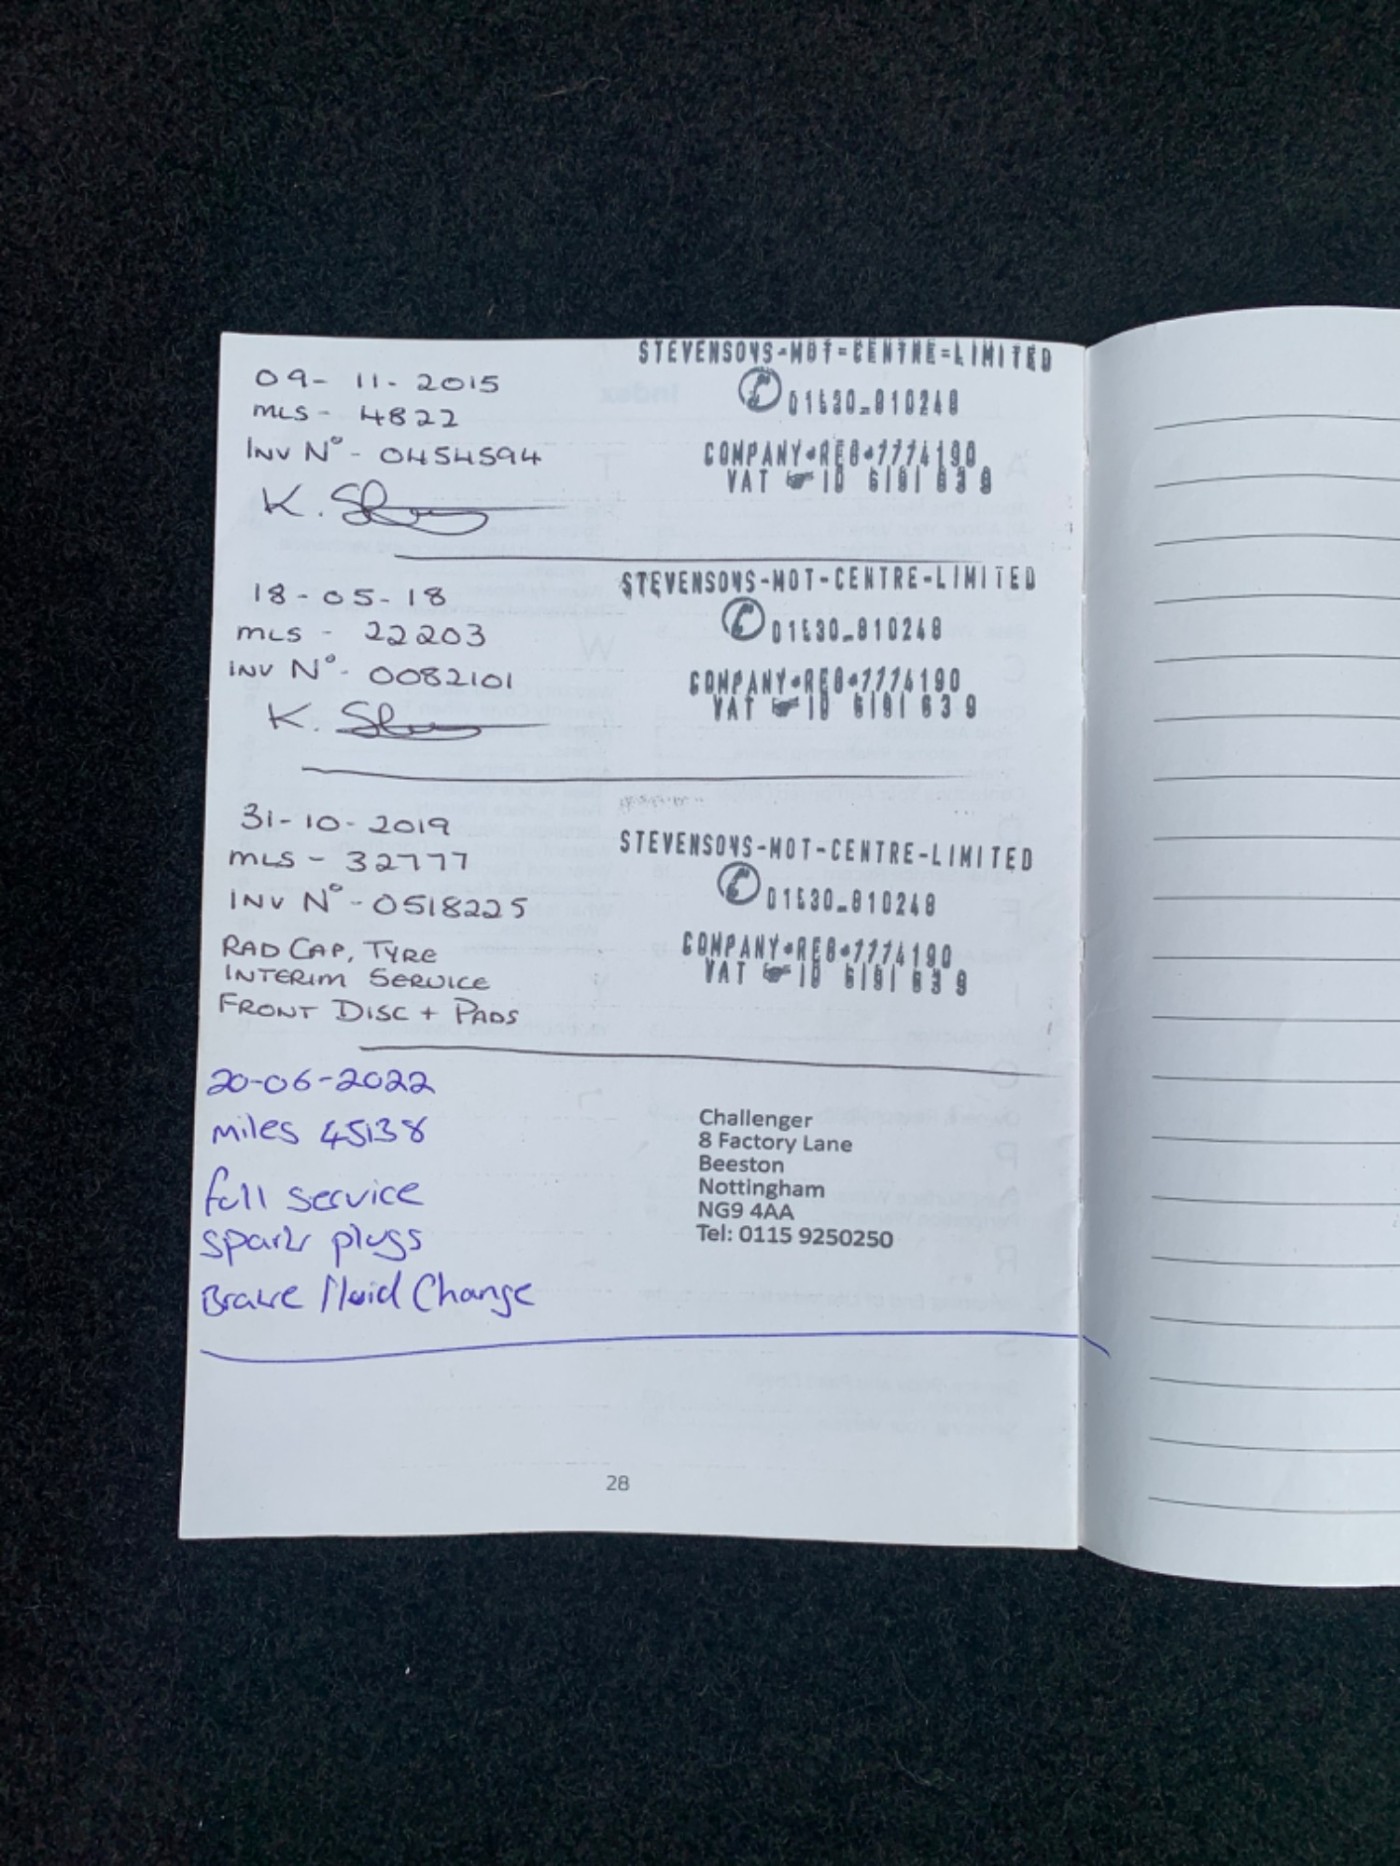 09-11-2015
MLS - 4822
INV Nº - 0454594
K.
STEVENSONS-MOT-CENTRE-LIMITED
01530-810248
COMPANY REG 7774190
VAT ID 6191 639
18-05-18
MLS - 22203
INV Nº - 0082101
K.
STEVENSONS-MOT-CENTRE-LIMITED
01530-810248
COMPANY REG 7774190
VAT ID 6191 639
31-10-2019
MLS - 32777
INV Nº - 0518225
RAD CAP, TYRE
INTERIM SERVICE
FRONT DISC + PADS
STEVENSONS-MOT-CENTRE-LIMITED
01530-810248
COMPANY REG 7774190
VAT ID 6191 639
20-06-2022
miles 45138
full service
spark plugs
Brake fluid Change
Challenger
8 Factory Lane
Beeston
Nottingham
NG9 4AA
Tel: 0115 9250250
28